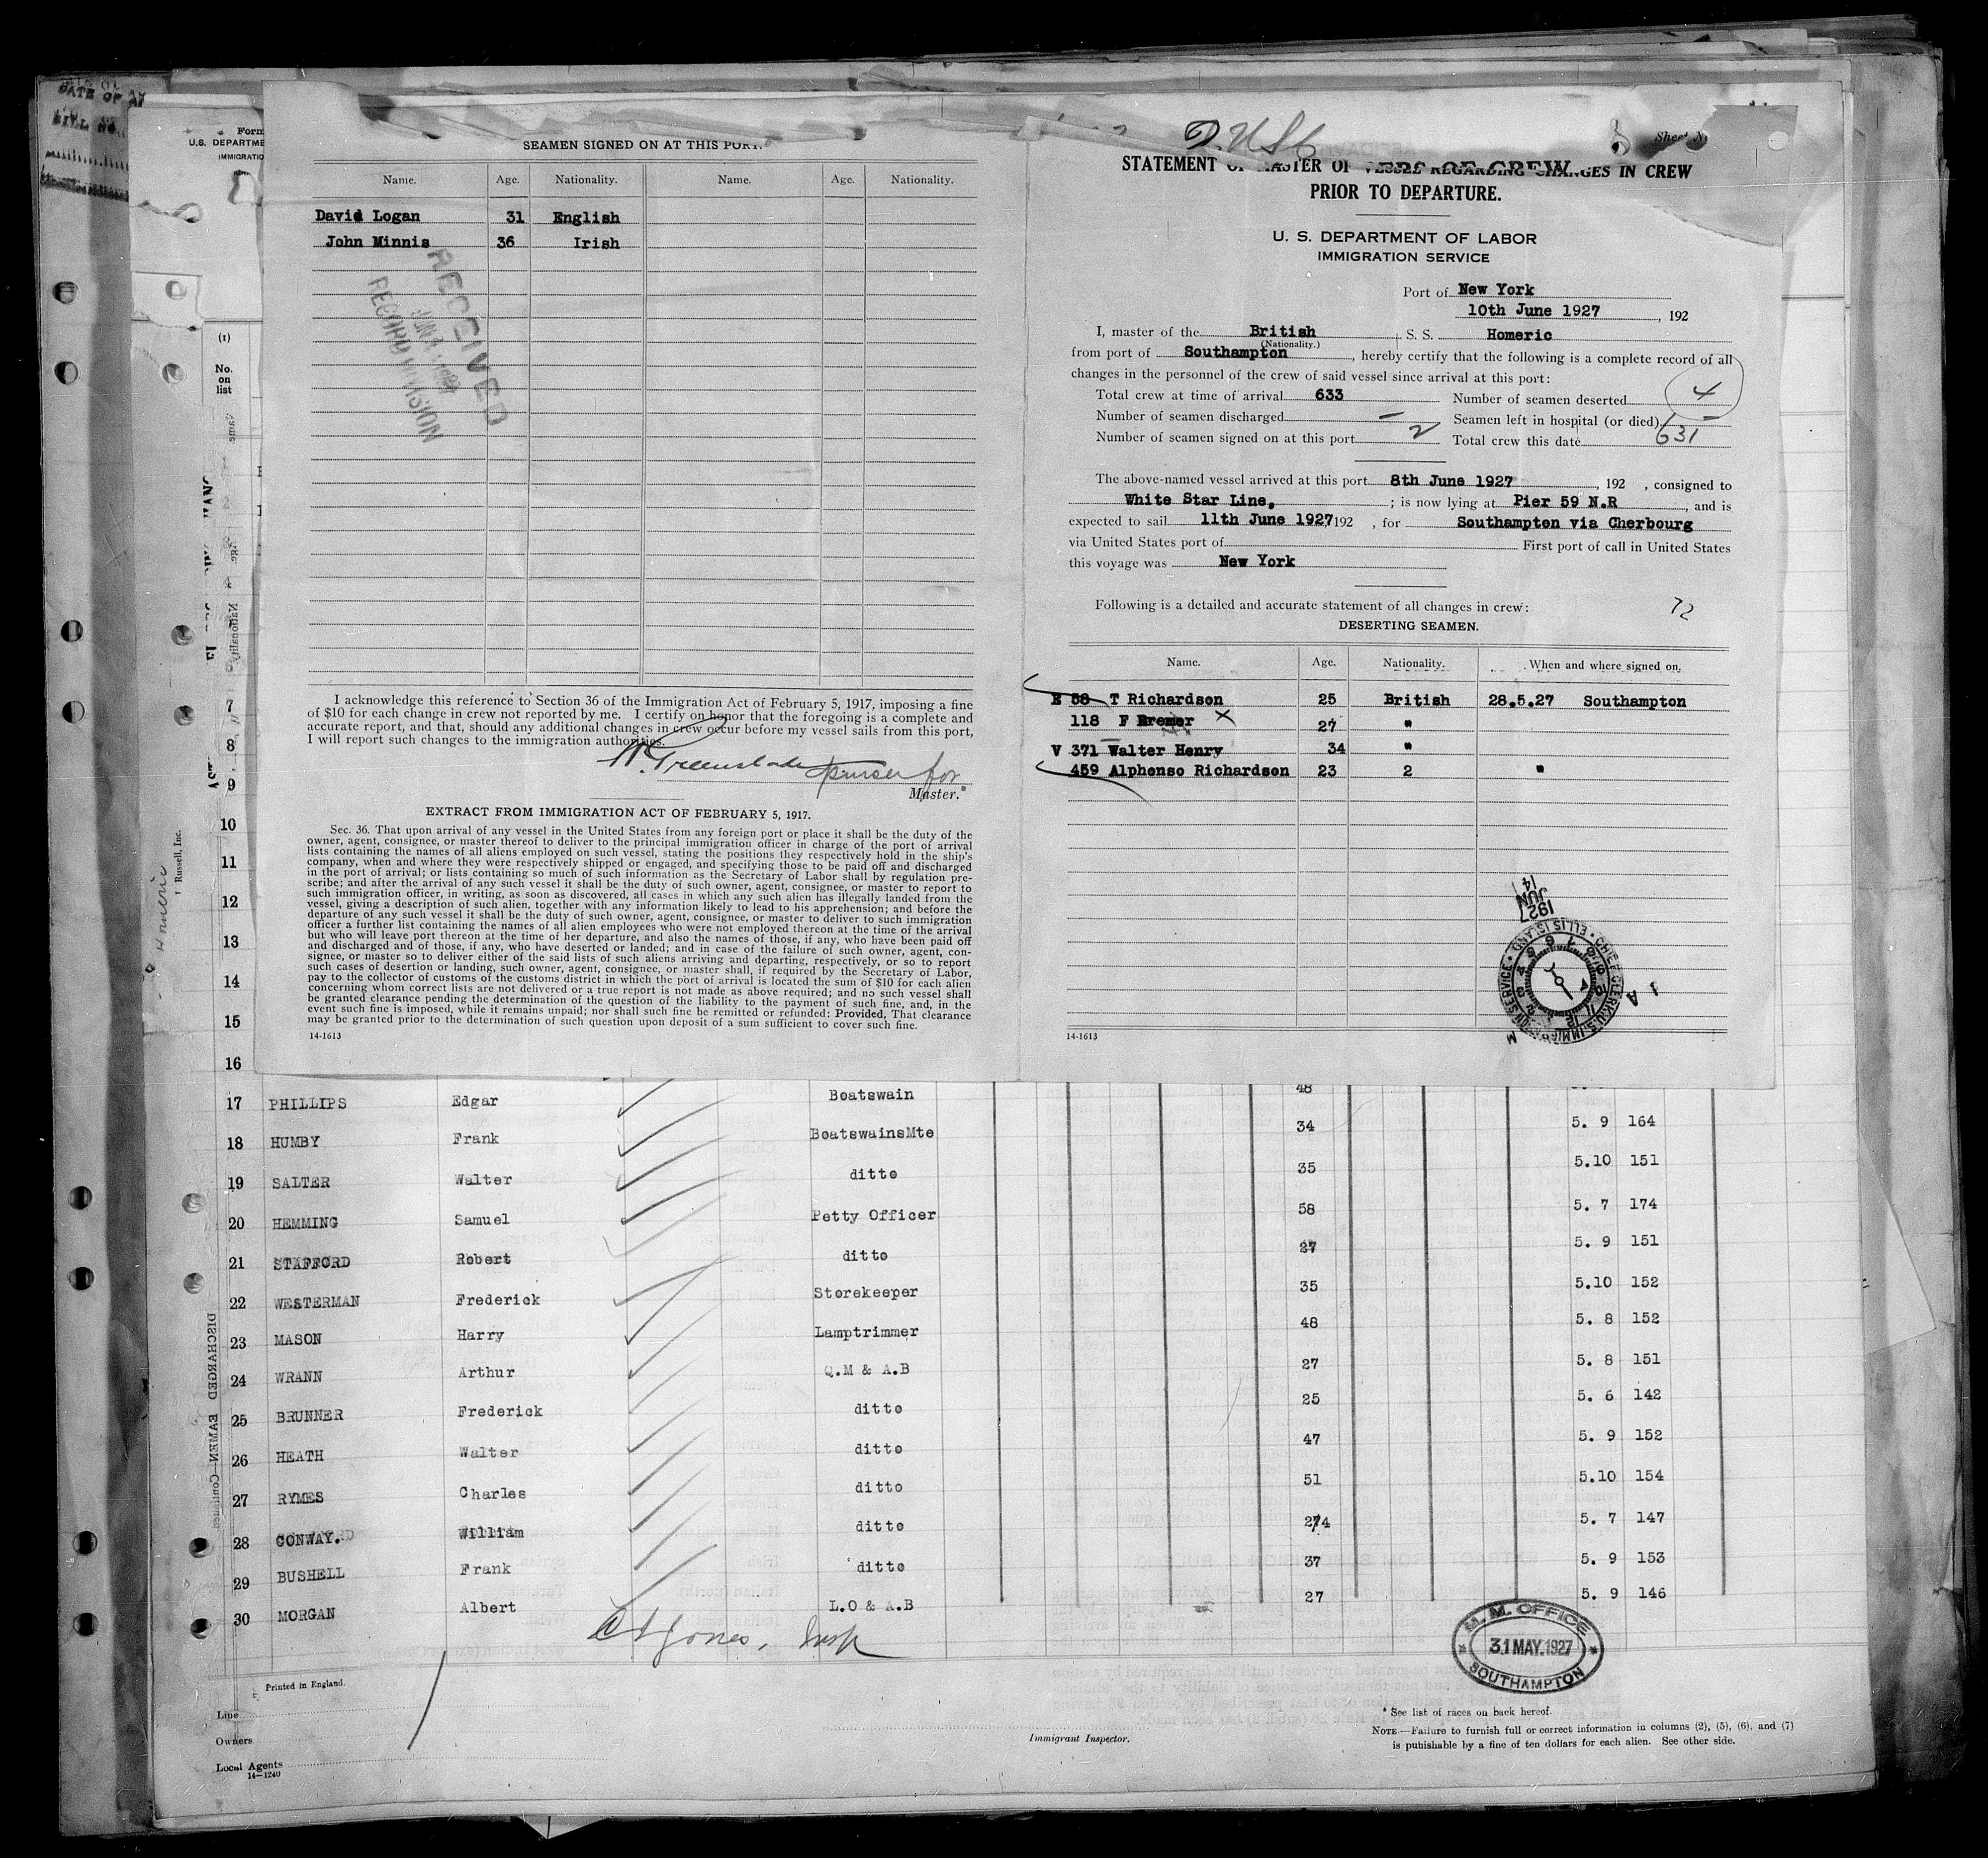 SEAMEN SIGNED ON AT THIS PORT.
Name. Age. Nationality. Name. Age. Nationality.
David Logan 31 English
John Minnis 36 Irish
RECEIVED
RECORD DIVISION
I acknowledge this reference to Section 36 of the Immigration Act of February 5, 1917, imposing a fine
of $10 for each change in crew not reported by me. I certify on honor that the foregoing is a complete and
accurate report, and that, should any additional changes in crew occur before my vessel sails from this port,
I will report such changes to the immigration authorities.
purser for
Master.
EXTRACT FROM IMMIGRATION ACT OF FEBRUARY 5, 1917.
Sec. 36. That upon arrival of any vessel in the United States from any foreign port or place it shall be the duty of the
owner, agent, consignee, or master thereof to deliver to the principal immigration officer in charge of the port of arrival
lists containing the names of all aliens employed on such vessel, stating the positions they respectively hold in the ship's
company, when and where they were respectively shipped or engaged, and specifying those to be paid off and discharged
in the port of arrival; or lists containing so much of such information as the Secretary of Labor shall by regulation pre-
scribe; and after the arrival of any such vessel it shall be the duty of such owner, agent, consignee, or master to report to
such immigration officer, in writing, as soon as discovered, all cases in which any such alien has illegally landed from the
vessel, giving a description of such alien, together with any information likely to lead to his apprehension; and before the
departure of any such vessel it shall be the duty of such owner, agent, consignee, or master to deliver to such immigration
officer a further list containing the names of all alien employees who were not employed thereon at the time of the arrival
but who will leave port thereon at the time of her departure, and also the names of those, if any, who have been paid off
and discharged and of those, if any, who have deserted or landed; and in case of the failure of such owner, agent, con-
signee, or master so to deliver either of the said lists of such aliens arriving and departing, respectively, or so to report
such cases of desertion or landing, such owner, agent, consignee, or master shall, if required by the Secretary of Labor,
pay to the collector of customs of the customs district in which the port of arrival is located the sum of $10 for each alien
concerning whom correct lists are not delivered or a true report is not made as above required; and no such vessel shall
be granted clearance pending the determination of the question of the liability to the payment of such fine, and, in the
event such fine is imposed, while it remains unpaid; nor shall such fine be remitted or refunded: Provided, That clearance
may be granted prior to the determination of such question upon deposit of a sum sufficient to cover such fine.
14-1613
Sheet
STATEMENT OF MASTER OF VESSEL REGARDING CHANGES IN CREW
PRIOR TO DEPARTURE.
U. S. DEPARTMENT OF LABOR
IMMIGRATION SERVICE
Port of New York
10th June 1927, 192
I, master of the British S. S. Homeric
(Nationality.)
from port of Southampton, hereby certify that the following is a complete record of all
changes in the personnel of the crew of said vessel since arrival at this port:
Total crew at time of arrival 633 Number of seamen deserted 4
Number of seamen discharged – Seamen left in hospital (or died) –
Number of seamen signed on at this port 2 Total crew this date 631
The above-named vessel arrived at this port 8th June 1927, 192 , consigned to
White Star Line, ; is now lying at Pier 59 N.R , and is
expected to sail 11th June 1927 192 , for Southampton via Cherbourg
via United States port of First port of call in United States
this voyage was New York
Following is a detailed and accurate statement of all changes in crew: 72
DESERTING SEAMEN.
Name. Age. Nationality. When and where signed on.
E 58 T Richardson 25 British 28.5.27 Southampton
118 F Bremer X 27 "
V 371 Walter Henry 34 "
459 Alphonso Richardson 23 2 "
1927 JUN 14
CHIEF CLERK, U.S. IMMIGRATION SERVICE • ELLIS ISLAND •
14-1613
Form
U. S. DEPARTME
IMMIGRATIO
(1)
No.
on
list
7
8
9
10
11
12
13
14
15
16
Homeric
Russell, Inc.
DISCHARGED EAMEN—Continued
17 PHILLIPS Edgar Boatswain 48
18 HUMBY Frank BoatswainsMte 34 5. 9 164
19 SALTER Walter ditto 35 5.10 151
20 HEMMING Samuel Petty Officer 58 5. 7 174
21 STAFFORD Robert ditto 27 5. 9 151
22 WESTERMAN Frederick Storekeeper 35 5.10 152
23 MASON Harry Lamptrimmer 48 5. 8 152
24 WRANN Arthur Q.M & A.B 27 5. 8 151
25 BRUNNER Frederick ditto 25 5. 6 142
26 HEATH Walter ditto 47 5. 9 152
27 RYMES Charles ditto 51 5.10 154
28 CONWAY. William ditto 5. 7 147
29 BUSHELL Frank ditto 37 5. 9 153
30 MORGAN Albert L.O & A.B 27 5. 9 146
Jones, Insp
M. M. OFFICE
31 MAY.1927
SOUTHAMPTON
Printed in England.
Line
Owners
Local Agents
14—1240
Immigrant Inspector.
* See list of races on back hereof.
NOTE.—Failure to furnish full or correct information in columns (2), (5), (6), and (7)
is punishable by a fine of ten dollars for each alien. See other side.